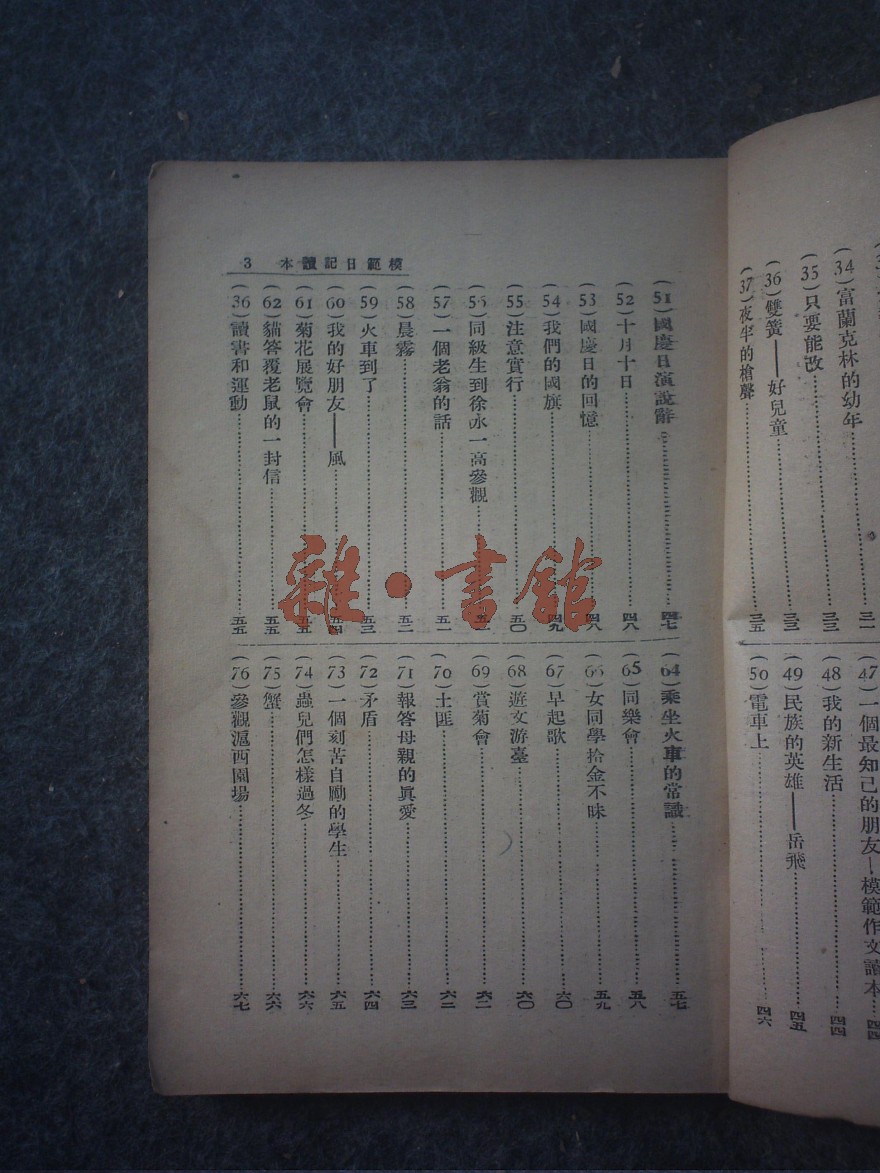 (34)富蘭克林的幼年 三一
(35)只要能改 三三
(36)雙簧——好兒童 三三
(37)夜半的槍聲 三五
(47)一個最知己的朋友—模範作文讀本 四四
(48)我的新生活 四四
(49)民族的英雄——岳飛 四五
(50)電車上 四六
模範日記讀本 3
(51)國慶日演說辭 四七
(52)十月十日 四八
(53)國慶日的回憶 四八
(54)我們的國旗 四九
(55)注意實行 五〇
(56)同級生到徐永一高參觀
(57)一個老翁的話 五一
(58)晨霧 五二
(59)火車到了 五三
(60)我的好朋友——風 五四
(61)菊花展覽會 五五
(62)貓答覆老鼠的一封信 五五
(36)讀書和運動 五五
(64)乘坐火車的常識 五七
(65)同樂會 五八
(66)女同學拾金不昧 五九
(67)早起歌 六〇
(68)遊文游臺 六〇
(69)賞菊會 六二
(70)土匪 六二
(71)報答母親的眞愛 六三
(72)矛盾 六四
(73)一個刻苦自勵的學生 六五
(74)蟲兒們怎樣過冬 六六
(75)蟹 六六
(76)參觀滬西園場 六七
雜·書館